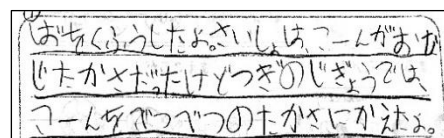 はおもくふうしたよ。さいしょは、こーんがおな
じたかさだったけどつぎのじぎょうでは、
こーんをべつべつのたかさにかえたよ。